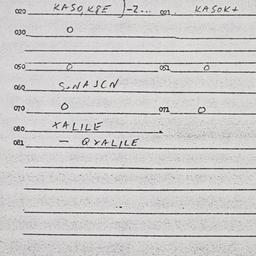 020 KASOKPE )-2... 021 KASOK+
030 0
050 0 051 0
060 S.NAJCN
070 0 071 0
080 XALILE
081 - QYALILE